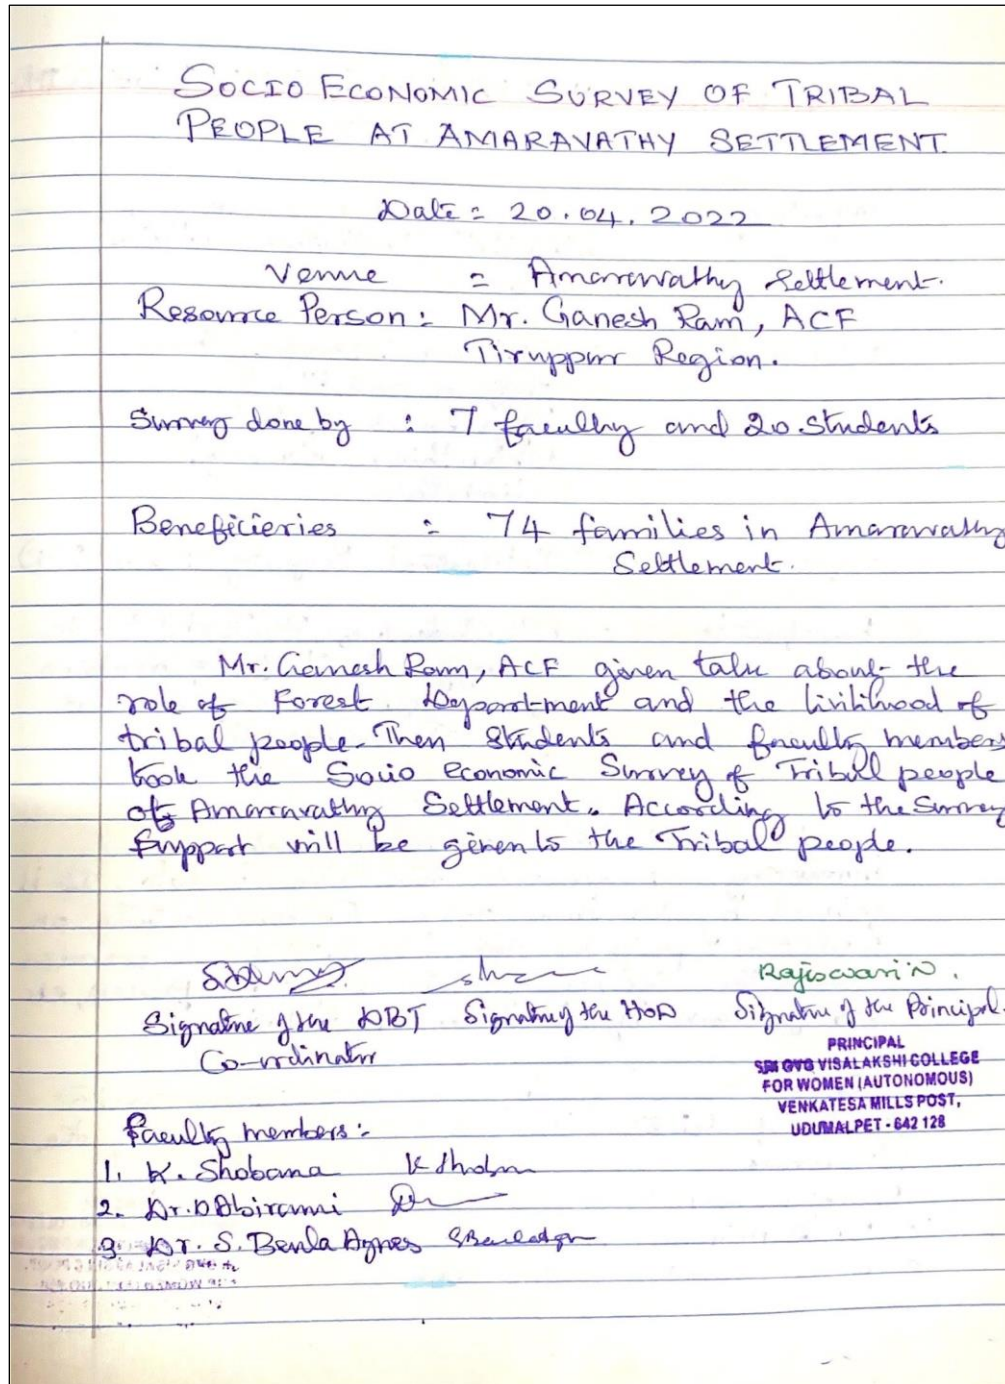 SOCIO ECONOMIC SURVEY OF TRIBAL
PEOPLE AT AMARAVATHY SETTLEMENT
Date : 20.04.2022
Venue : Amaravathy Settlement.
Resource Person : Mr. Ganesh Ram, ACF
Tiruppur Region.
Survey done by : 7 faculty and 20 Students
Beneficieries : 74 families in Amaravathy
Settlement.
Mr. Ganesh Ram, ACF given talk about the
role of Forest Department and the livilihood of
tribal people. Then Students and faculty members
took the Socio economic Survey of Tribal people
of Amaravathy Settlement. According to the Survey
Support will be given to the Tribal people.
Rajeswari N.
Signature of the DBT Signature of the HOD Signature of the Principal.
Co-ordinator
PRINCIPAL
SRI GVG VISALAKSHI COLLEGE
FOR WOMEN (AUTONOMOUS)
VENKATESA MILLS POST,
UDUMALPET - 642 128
Faculty members :-
1. K. Shobana
2. Dr. D Abirami
3. Dr. S. Benla Agnes